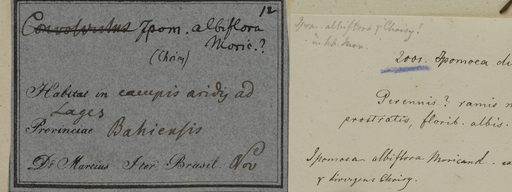 12
Convolvulus Ipom. albiflora
Moric.?
(Choisy)
Habitat in campis aridis ad
Lages
Provinciae Bahiensis
Dr Martius Iter Brasil. Nov
Ipom. albiflora γ Choisy?
in hb. Moric
2001. Ipomoea di
Perennis? ramis
prostratis, florib. albis.
Ipomoea albiflora Moricand.
γ divergens Choisy.